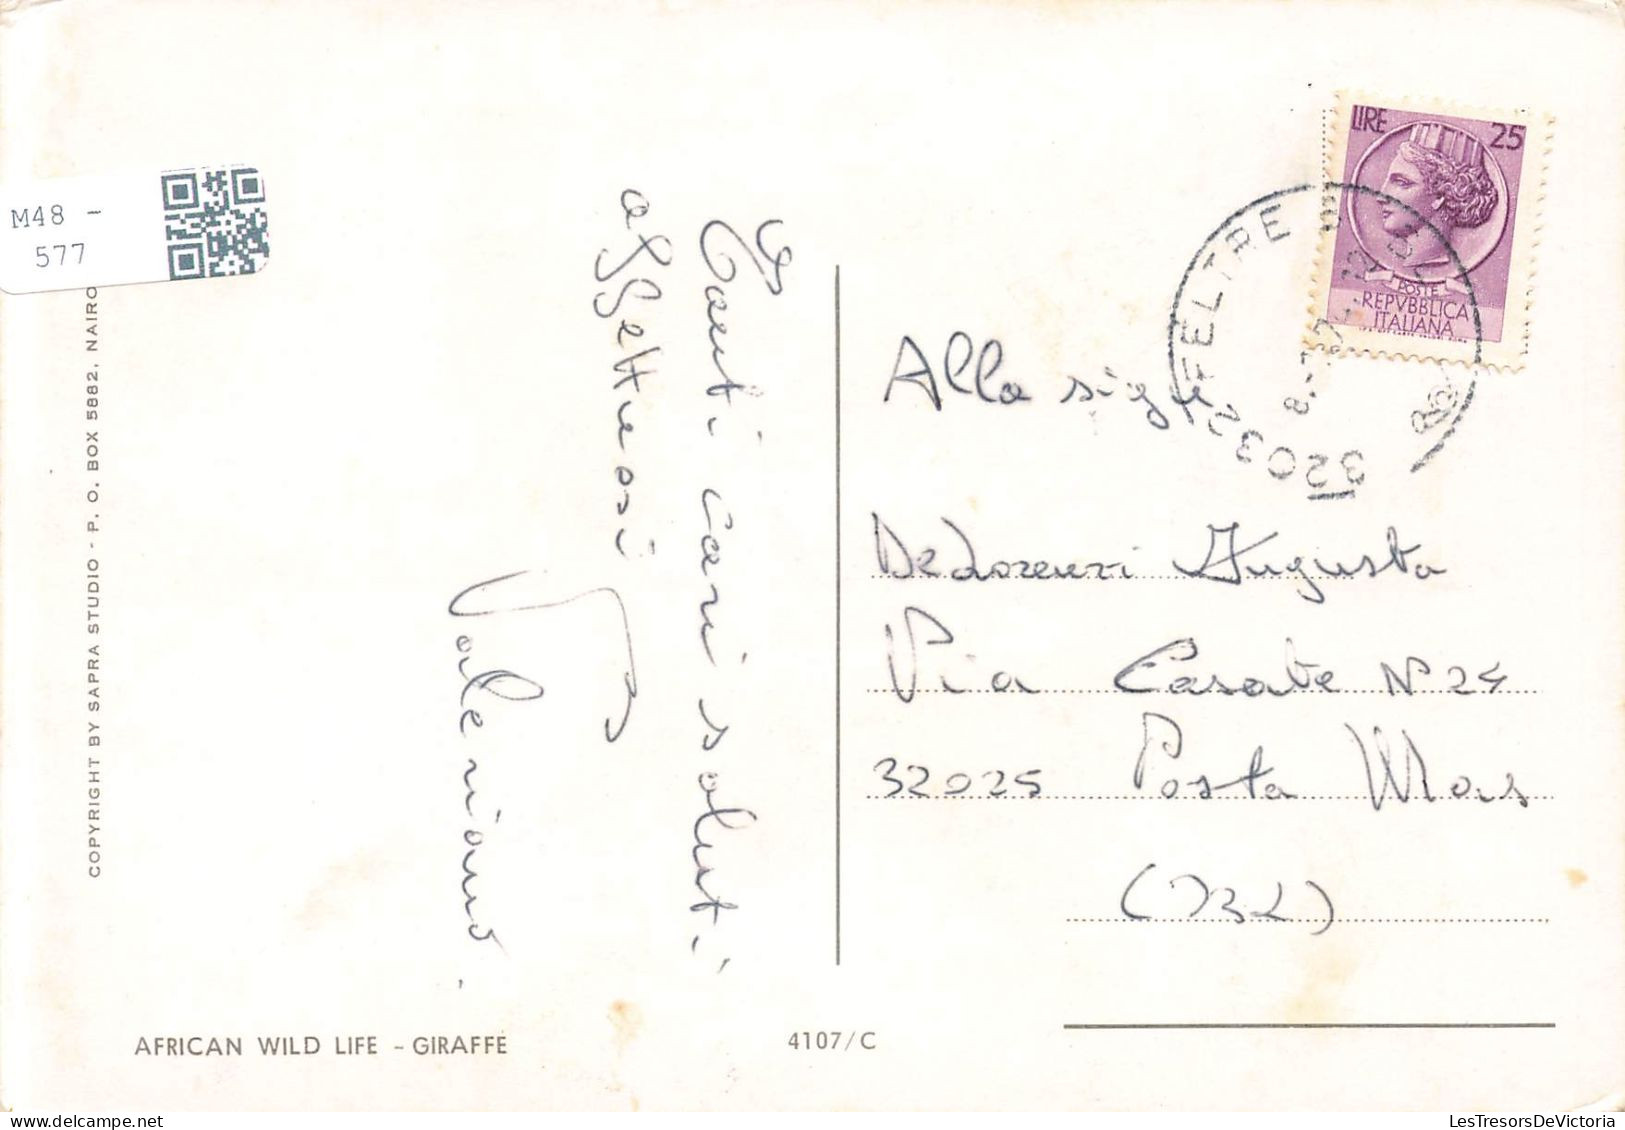 M48 -
577
COPYRIGHT BY SAPRA STUDIO - P. O. BOX 5882, NAIRO
Tanti cari saluti
affettuosi
Valeriano.
LIRE 25
POSTE
REPVBBLICA
ITALIANA
32032 FELTRE
Alla sig
De Lorenzi Augusta
Via Casate N° 24
32025 Posta Mas
(BL)
AFRICAN WILD LIFE - GIRAFFE
4107/C
LesTresorsDeVictoria.com